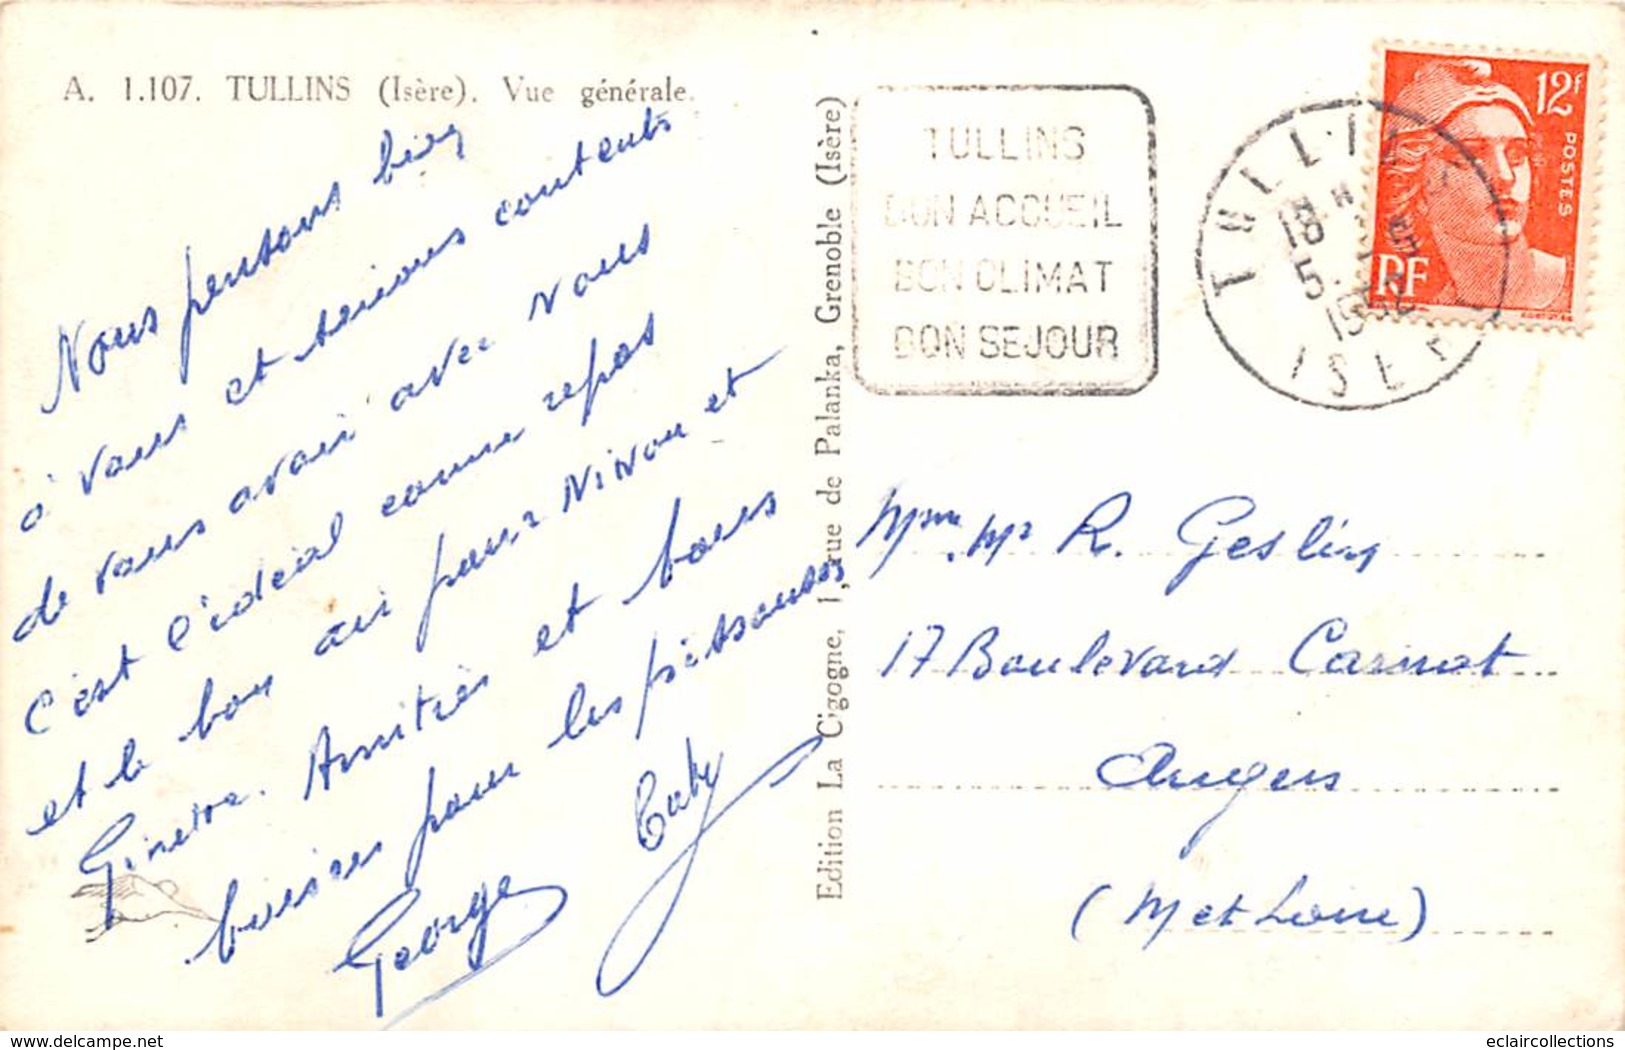 A. 1.107. TULLINS (Isère). Vue générale.
Nous pensons bien
à vous et serions contents
de vous avoir avec nous
c'est l'idéal comme repos
et le bon air pour Ninou et
Ginette. Amitiés et bons
baisers pour les pitchounes
George
Edition La Cigogne, 1, rue de Palanka, Grenoble (Isère)
TULLINS
BON ACCUEIL
BON CLIMAT
BON SEJOUR
TULLINS
18 H
5
ISERE
12F
POSTES
RF
Mme Mr R. Geslin
17 Boulevard Carnot
Angers
(M et Loire)
eclaircollections